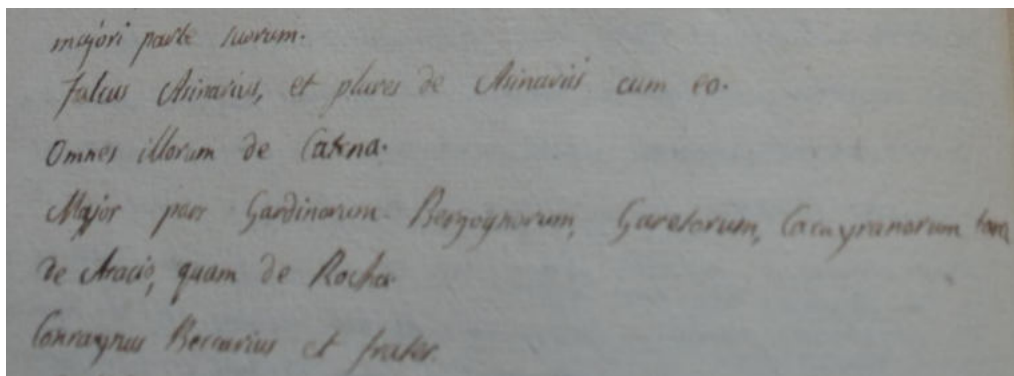 majori parte suorum.
Falcus Asinarius, et plures de Asinariis cum eo.
Omnes illorum de Catena.
Major pars Gardinorum Bergognorum, Garetorum, Cacayranorum tam
de Aracio, quam de Rocha.
Conraynus Beccarius et frater.